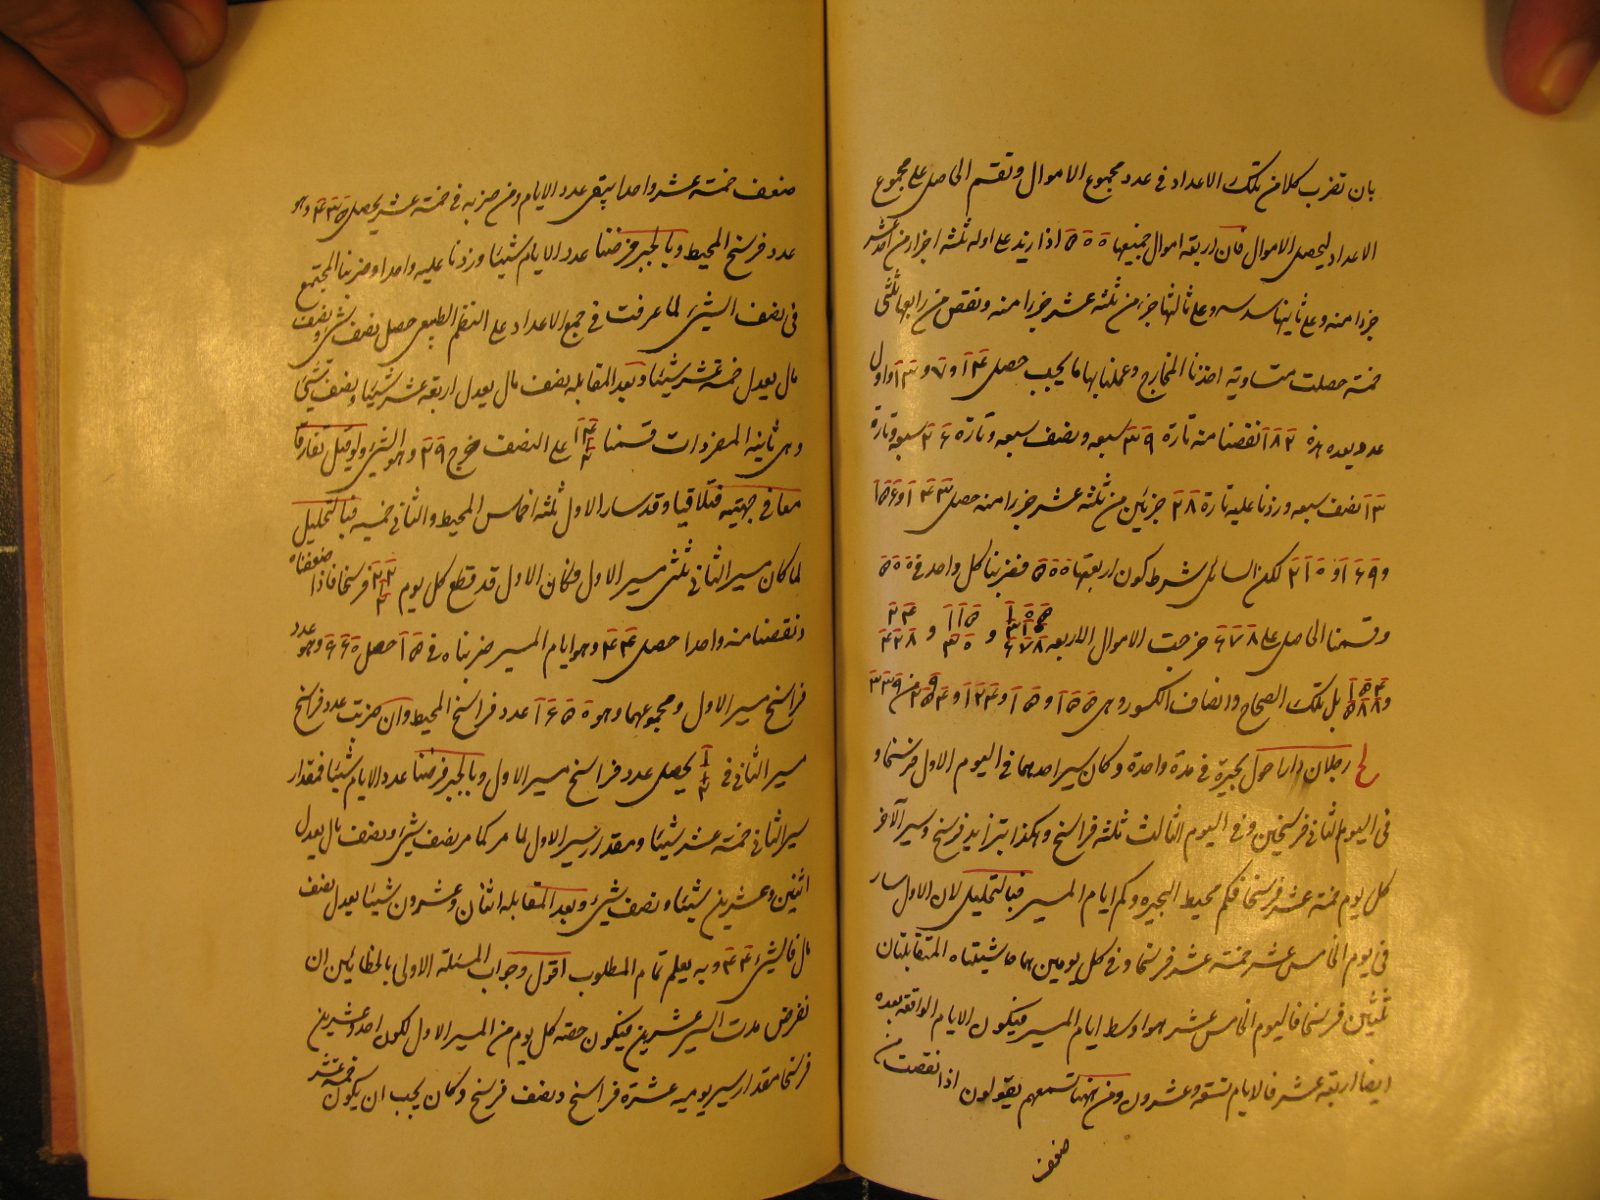 بان تضرب كلا من تلك الاعداد فى عدد مجموع الاموال وتقسم الحاصل على مجموع
الاعداد ليحصل الاموال فان اربعة اموال جميعها ۵۵۵ اذا زيد على اوله ثلثة اجزاء من احد عشر
جزءا منه وعلى ثانيها سدسه وعلى ثالثها جزء من ثلثة عشر جزءا منه ونقص من رابعها ثلثى
خمسة حصلت متساوية اخذنا المخارج وعملنا بها ما يجب حصل ۱۴ و ۷ و ۱۳ واول
عدد يعده هذه ۱۸۲ نقصنا منه تارة ۳۹ سبعه ونصف سبعه وتارة ۲۶ سبعه وتارة
۱۳ نصف سبعه وزدنا عليه تارة ۲۸ جزئين من ثلثة عشر جزءا منه حصل ۱۴۳ و ۱۵۶
و ۱۶۹ و ۲۱۰ لكن السائل شرط كون اربعتها ۵۵۵ فضربنا كل واحد فى ۵۵۵
وقسمنا الحاصل على ۶۷۸ خرجت الاموال الاربعة
بل تلك الصحاح وانصاف الكسور وهى
لح رجلان دارا حول بحيرة فى مدة واحدة وكان سير احدهما فى اليوم الاول فرسخا و
فى اليوم الثانى فرسخين وفى اليوم الثالث ثلثة فراسخ وهكذا بتزايد فرسخ وسير الآخر
كل يوم خمسة عشر فرسخا فكم محيط البحيرة وكم ايام المسير فبالتحليل لان الاول سار
فى يوم الخامس عشر خمسة عشر فرسخا وفى كل يومين هما حاشيتاه المتقابلتان
ثلثين فرسخا فاليوم الخامس عشر هو اوسط ايام المسير فيكون الايام الواقعة بعده
ايضا اربعة عشر فالايام تسعة وعشرون ومن ههنا تسمعهم يقولون اذا نقصت من
ضعف
ضعف خمسة عشر واحدا يبقى عدد الايام ومن ضربه فى خمسة عشر يحصل ۴۳۵ وهو
عدد فراسخ المحيط وبالجبر فرضنا عدد الايام شيئا وزدنا عليه واحدا وضربنا المجتمع
فى نصف الشىء لما عرفت فى جمع الاعداد على النظم الطبيعى حصل نصف شىء ونصف
مال يعدل خمسة عشر شيئا وبعد المقابلة نصف مال يعدل اربعة عشر شيئا ونصف شىء
وهى ثانية المفردات قسمنا ۱۴ ۱/۲ على النصف خرج ۲۹ وهو الشىء ولو قيل تفارقا
معا فى جهتيه فتلاقيا وقد سار الاول ثلثة اخماس المحيط والثانى خمسيه فبالتحليل
لما كان مسير الثانى ثلثى مسير الاول فكان الاول قد قطع كل يوم ۲۲ ۱/۲ فرسخا فاذا ضعفناه
ونقصنا منه واحدا حصل ۴۴ وهو ايام المسير ضربناه فى ۱۵ حصل ۶۶۰ وهو عدد
فراسخ مسير الاول ومجموعهما وهو ۱۶۵۰ عدد فراسخ المحيط وان ضربت عدد فراسخ
مسير الثانى فى ۱ ۱/۲ يحصل عدد فراسخ مسير الاول وبالجبر فرضنا عدد الايام شيئا فمقدار
سير الثانى خمسة عشر شيئا ومقدار سير الاول لما مر كما مر نصف شىء ونصف مال يعدل
اثنين وعشرين شيئا ونصف شىء وبعد المقابلة اثنان وعشرون شيئا يعدل نصف
مال فالشىء ۴۴ وبه يعلم تمام المطلوب اقول وجواب المسئلة الاولى بالخطائين ان
نفرض مدت السير عشرين فيكون حصة كل يوم من المسير الاول لكون احد وعشرين
فرسخا مقدار سير يوميه عشرة فراسخ ونصف فرسخ وكان يجب ان يكون خمسة عشر